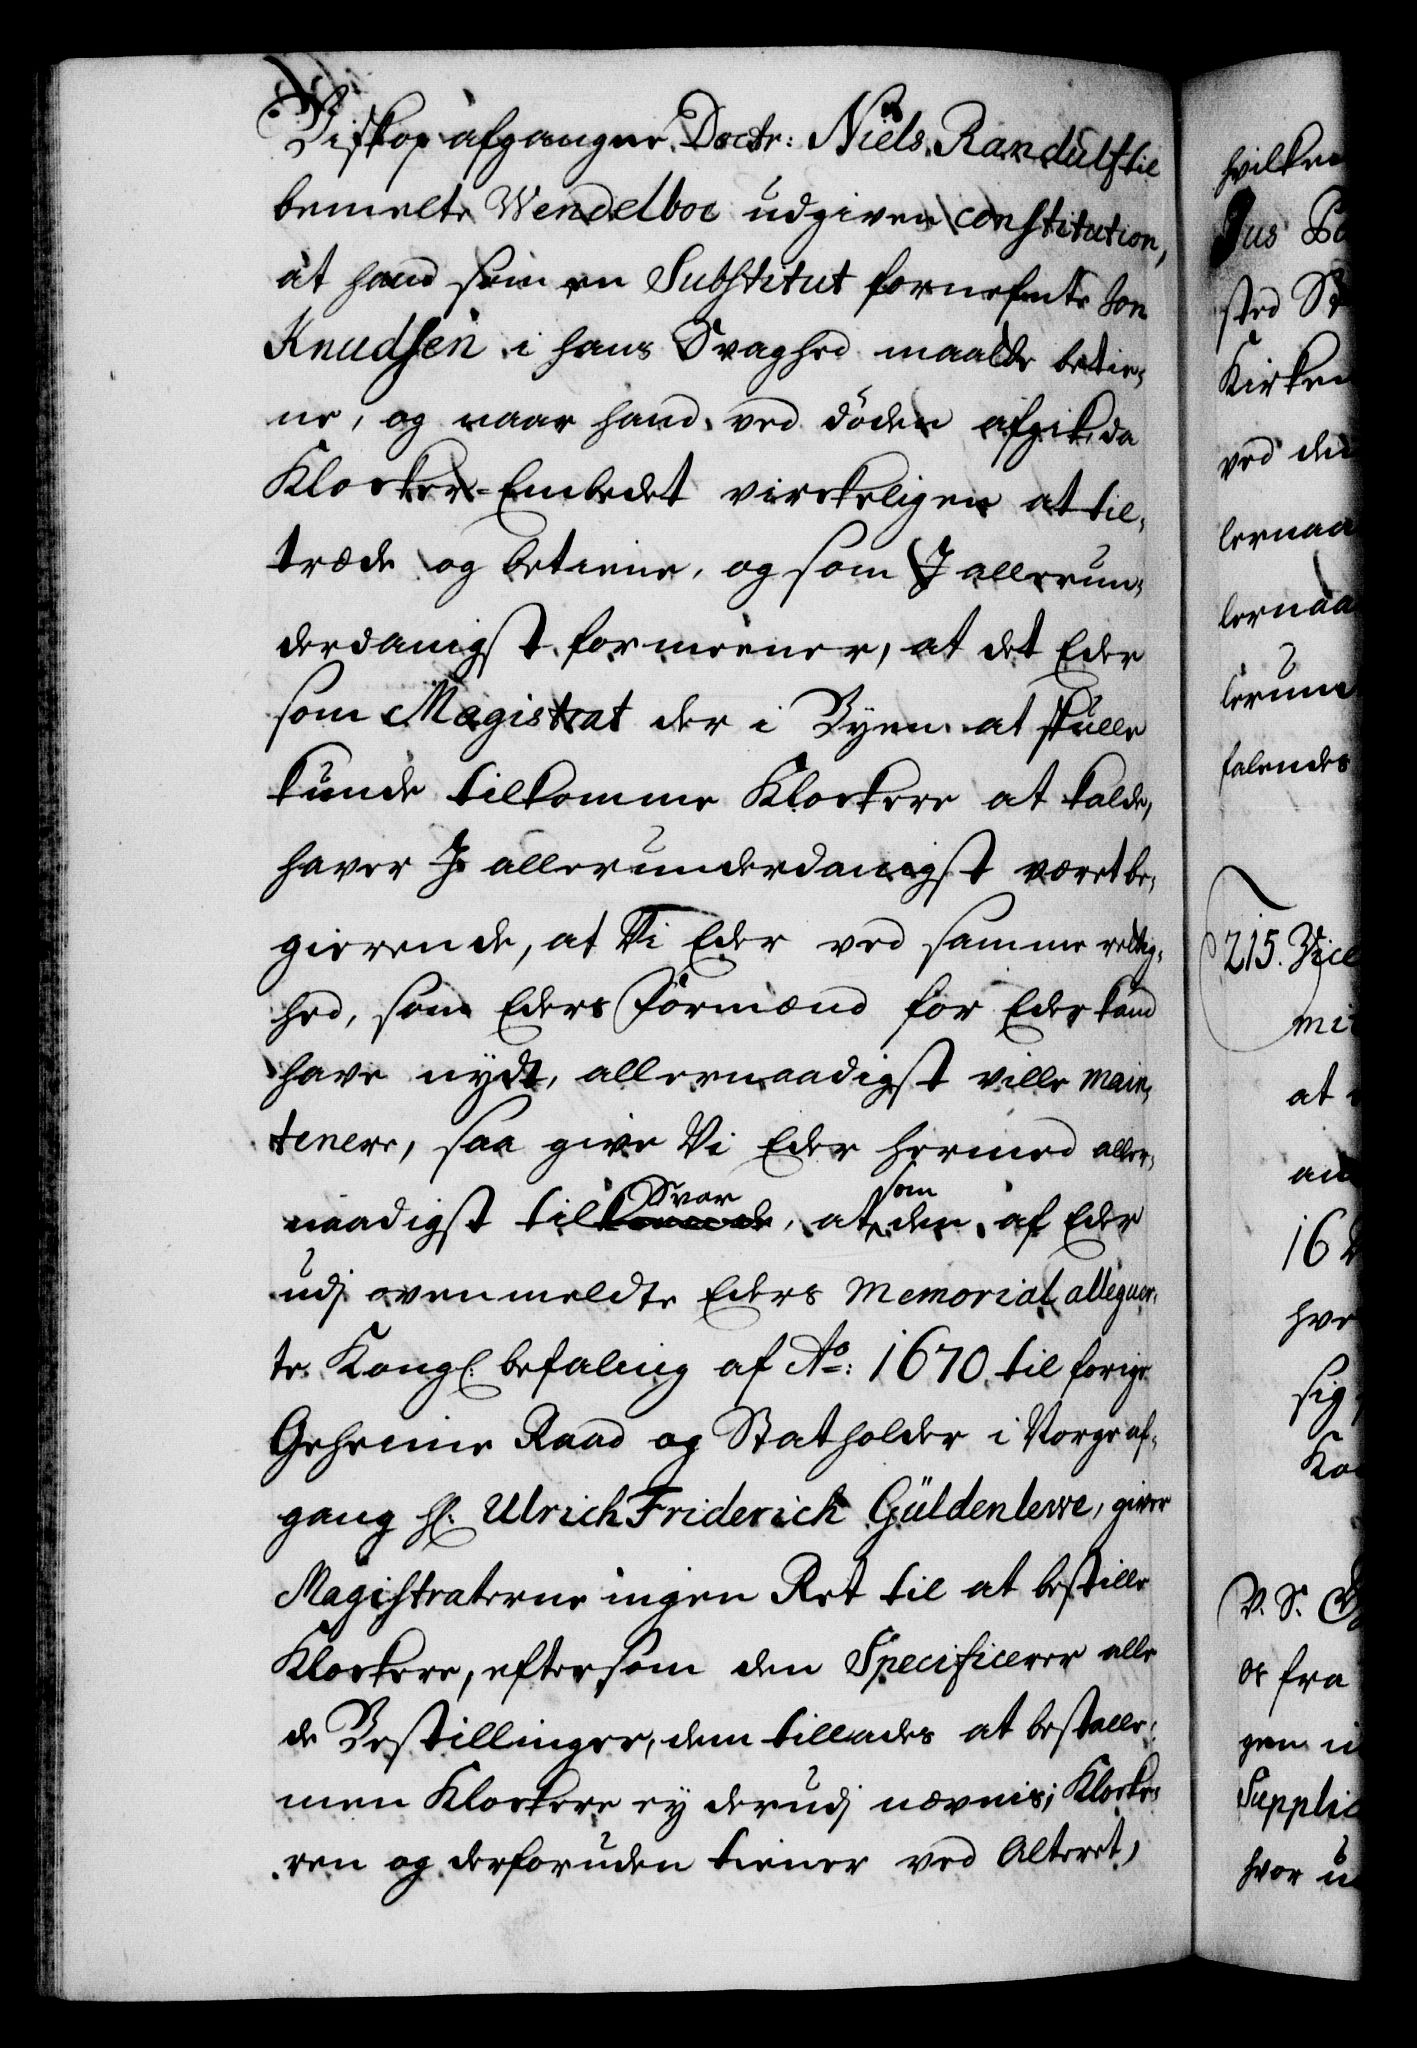 Biskop afgangne Doctr: Niels Randulf til
bemelte Wendelboe udgiven constitution,
at hand som en Substitut fornefnte Jon
Knudsen i hans Svaghed maatte betie-
ne, og naar hand ved døden afgik, da
Klocker-Embedet virckeligen at til-
træde og betiene, og som I allerun-
derdanigst formeener, at det Eder
som Magistrat der i Byen at skulle
kunde tilkomme Klockere at kalde,
haver I allerunderdanigst været be-
gierende, at Vi Eder ved samme rettig-
hed, som Eders Formænd for Eder kand
have nydt, allernaadigst ville main-
tenere, saa give Vi Eder hermed aller-
naadigst til Svar, at som den af Eder
udj ovenmeldte Eders Memorial alleguer-
te Kongl. befaling af Ao: 1670 til forige
Geheime Raad og Statholder i Norge af-
gang hl. Ulrich Friderich Güldenlewe, giver
Magistraterne ingen Ret til at bestille
Klockere, eftersom den Specificerer alle
de Bestillinger, dem tillades at bestalle,
men Klockere ey derudj nævnis; Klocke-
ren og derforuden tiener ved Alteret,
hvilken
Jus
sted
Kirken
ved den
lernaa
lernaa
lerun
falendes
215.
mi
at
an
16
hve
sig
V. S.
os fra
gen
Supplic
hvor